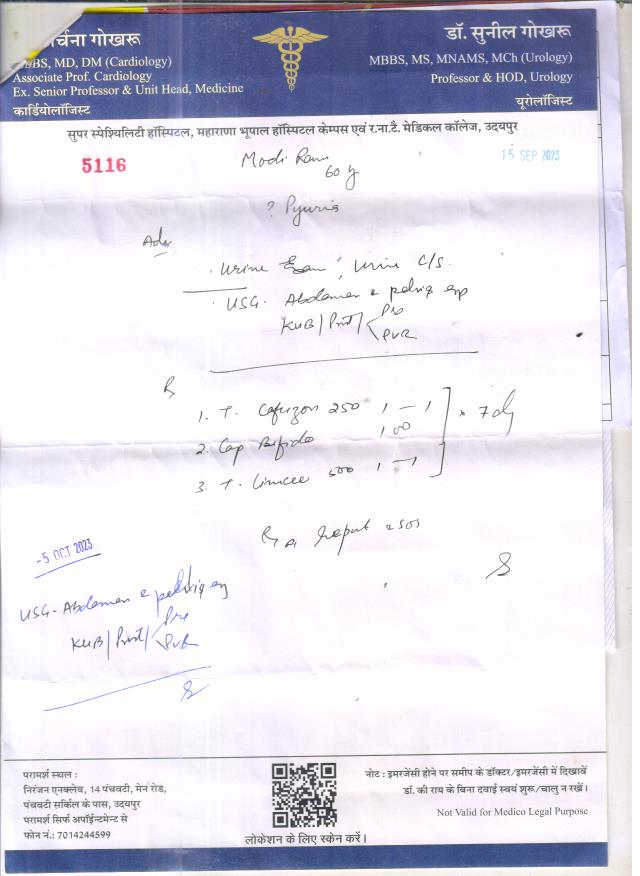 र्चना गोखरू
BBS, MD, DM (Cardiology)
Associate Prof. Cardiology
Ex. Senior Professor & Unit Head, Medicine
कार्डियोलॉजिस्ट
डॉ. सुनील गोखरू
MBBS, MS, MNAMS, MCh (Urology)
Professor & HOD, Urology
यूरोलॉजिस्ट
सुपर स्पेश्यिलिटी हॉस्पिटल, महाराणा भूपाल हॉस्पिटल केम्पस एवं र.ना.टै. मेडिकल कॉलेज, उदयपुर
5116
15 SEP 2023
Modi Ram
60 y
? Pyuria
Adv
Urine Exam, Urine C/S.
USG- Abdomen & pelvis
KUB/Prost/ Pre
PVR
1. T. 250 1 - 1
2. Cap Bifido 100
3. T. Limcee 500 1 - 1
x 7 day
Report SOS
-5 OCT 2023
USG- Abdomen & pelvis
KUB/Prost/ Pre
PVR
परामर्श स्थल :
निरंजन एनक्लेव, 14 पंचवटी, मेन रोड,
पंचवटी सर्किल के पास, उदयपुर
परामर्श सिर्फ अपॉईन्टमेन्ट से
फोन नं.: 7014244599
लोकेशन के लिए स्केन करें।
नोट : इमरजेंसी होने पर समीप के डॉक्टर/इमरजेंसी में दिखावें
डॉ. की राय के बिना दवाई स्वयं शुरू/चालु न रखें।
Not Valid for Medico Legal Purpose